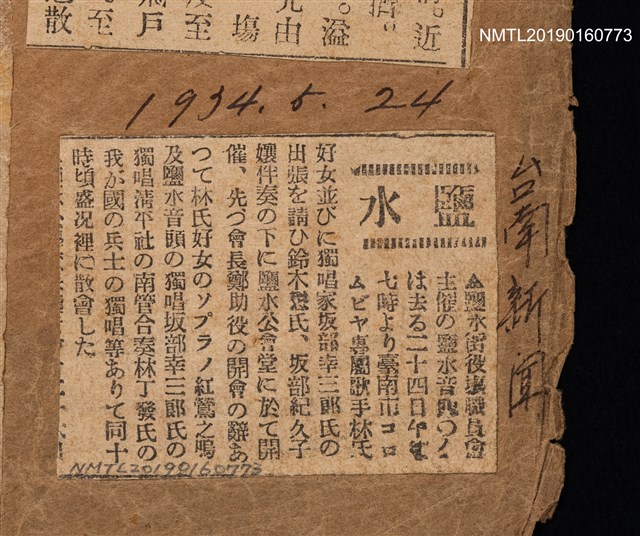 NMTL20190160773
1934.5.24
台南新聞
鹽水
△鹽水街役場職員會
主催の鹽水音
は去る二十四日午後
七時より臺南市コロ
ムビヤ專屬歌手林氏
好女並びに獨唱家坂部幸三郎氏の
出張を請ひ鈴木氏、坂部紀久子
孃伴奏の下に鹽水公會堂に於て開
催、先づ會長鄭助役の開會の辭あ
つて林氏好女のソプラノ紅鶯之鳴
及鹽水音頭の獨唱坂部幸三郎氏の
獨唱淸平社の南管合奏林丁發氏の
我が國の兵士の獨唱等ありて同十
時頃盛况裡に散會した
NMTL20190160773